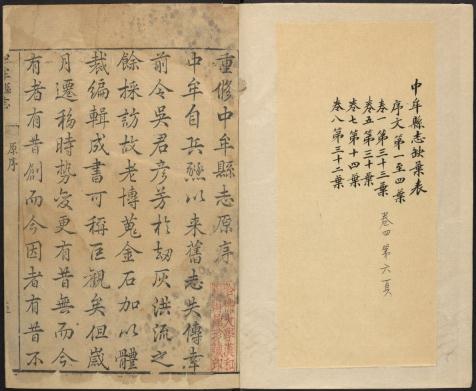 中牟縣志缺葉表
序文第一至四葉
卷一第三十三葉
卷五第三十葉
卷七第十四葉
卷八第三十二葉
卷四第六頁
重修中牟縣志原序
中牟自兵燹以来舊志失傳幸
前令吳君彦芳於劫灰洪流之
餘採訪故老博蒐金石加以體
裁編輯成書可称巨觀矣但歲
月遷移時勢夐更有昔無而今
有者有昔創而今因者有昔不
原序
哈佛大學漢和
圖書館珍藏印